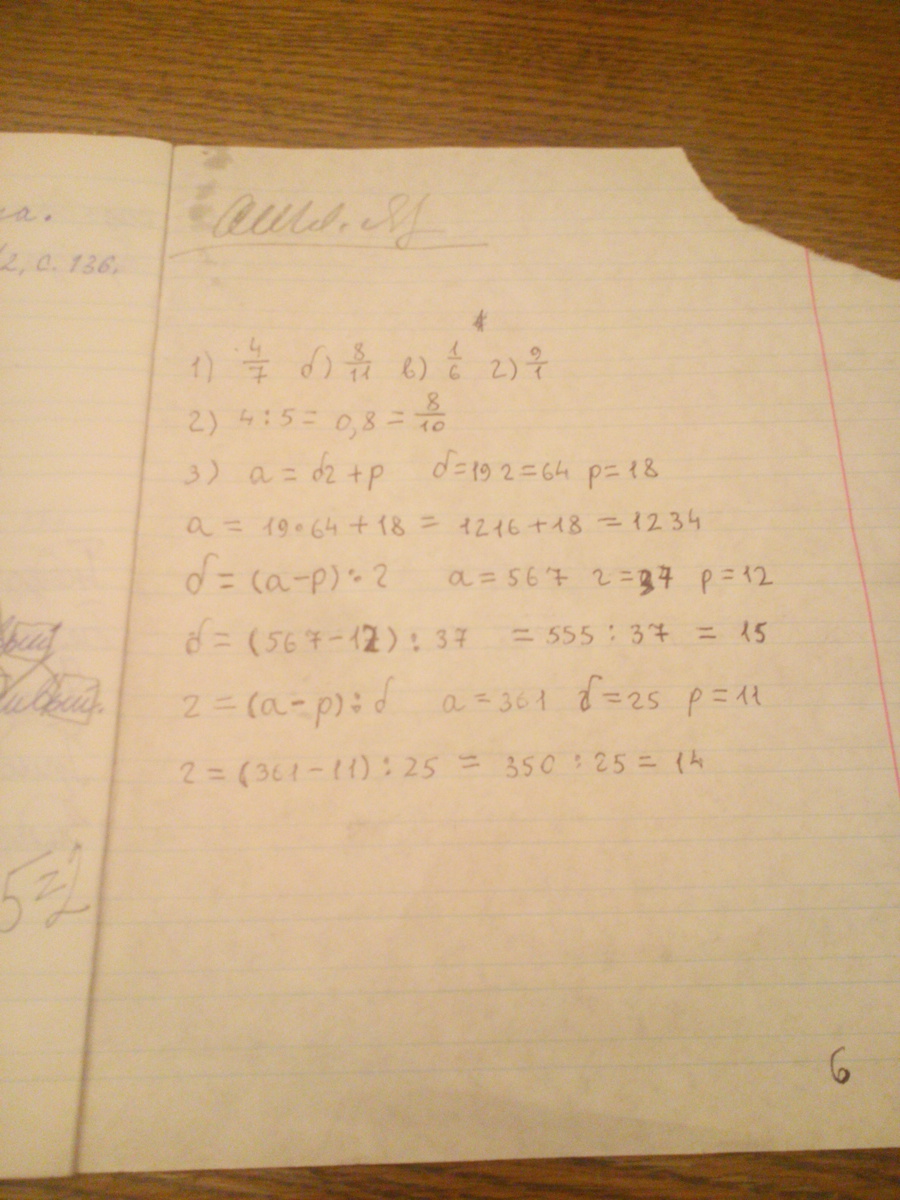 2, с. 136.
1) 4/7 б) 8/11 в) 1/6 г) 9/1
2) 4 : 5 = 0,8 = 8/10
3) a = бг + р б = 19 г = 64 р = 18
a = 19 • 64 + 18 = 1216 + 18 = 1234
б = (а - р) : г а = 567 г = 37 р = 12
б = (567 - 12) : 37 = 555 : 37 = 15
г = (а - р) : б а = 361 б = 25 р = 11
г = (361 - 11) : 25 = 350 : 25 = 14
5=2
6